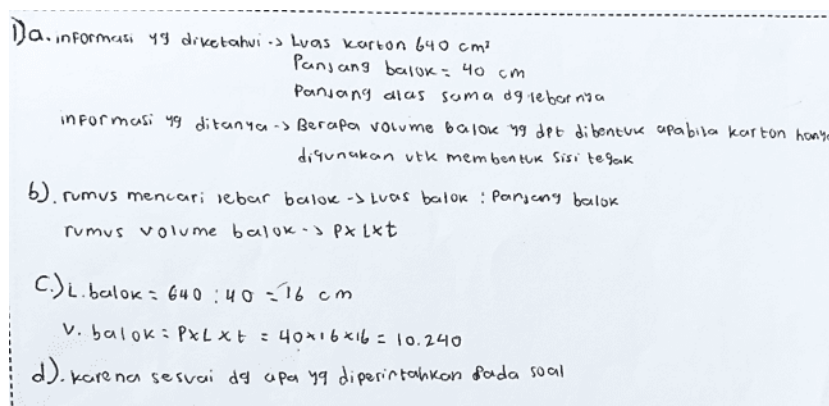 1) a. informasi yg diketahui -> Luas karton 640 cm²
Panjang balok = 40 cm
Panjang alas sama dg lebarnya
informasi yg ditanya -> Berapa volume balok yg dpt dibentuk apabila karton hany
digunakan utk membentuk sisi tegak
b). rumus mencari lebar balok -> Luas balok : Panjang balok
rumus volume balok -> P x L x t
c.) L. balok = 640 : 40 = 16 cm
V. balok = P x L x t = 40 x 16 x 16 = 10.240
d). karena sesuai dg apa yg diperintahkan pada soal